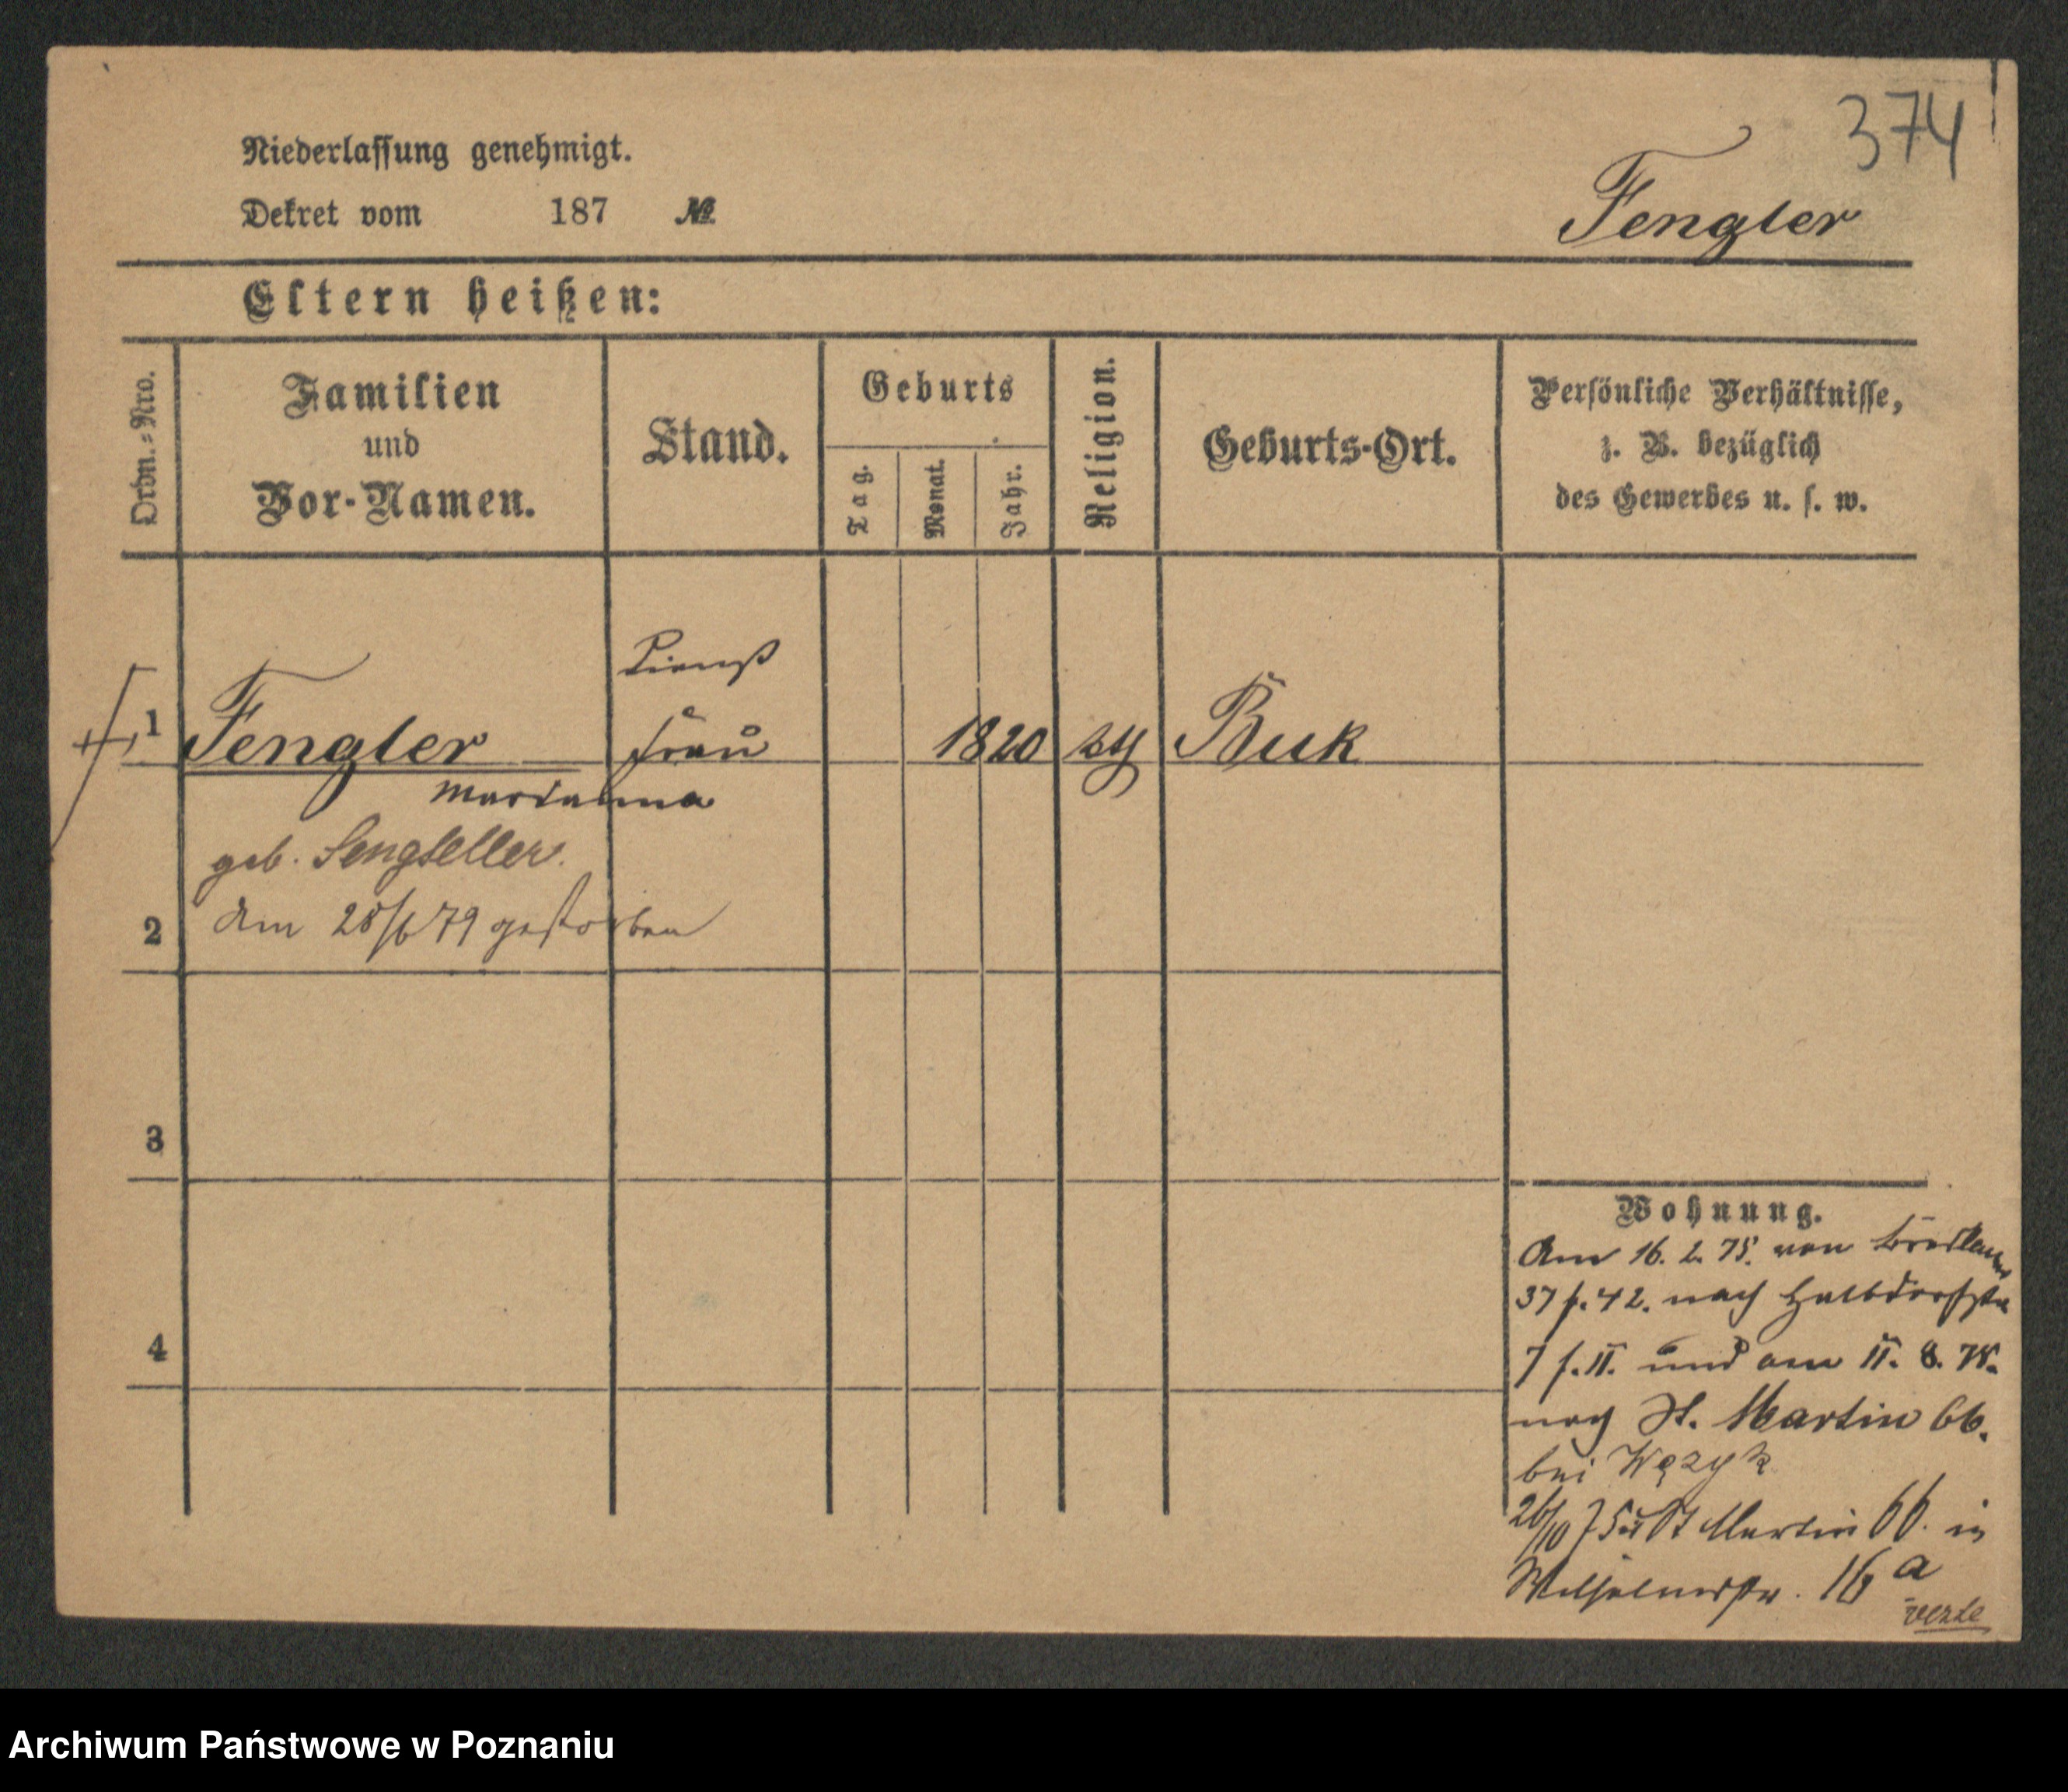 374
Niederlassung genehmigt.
Dekret vom 187 №
Fengler
Eltern heißen:
Ordn.-Nro.
Familien
und
Vor-Namen.
Stand.
Geburts
Tag.
Monat.
Jahr.
Religion.
Geburts-Ort.
Persönliche Verhältnisse,
z. B. bezüglich
des Gewerbes u. s. w.
Dienst
1 Fengler frau 1820 Buk
Marianna
geb.
2 Am 28/6 79 gestorben
3
4
Wohnung.
Am 16. 2. 75. von
37 f. 42. nach Halbdorfstr
7 f. II. und am 11. 8. 75.
nach St. Martin 66.
bei Węzyk
26/10 75 St Martin 66. in
Wilhelmstr. 16 a
verte
Archiwum Państwowe w Poznaniu